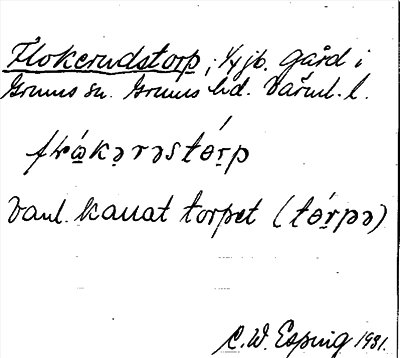 Flokerudstorp, 1/4 jb. Gård i
Grums sn. Grums hd. Värml. l.
flɷ́kərəstɵ́rp
Vanl. kallat torpet (tɵ́rpə)
C. W. Esping 1931.